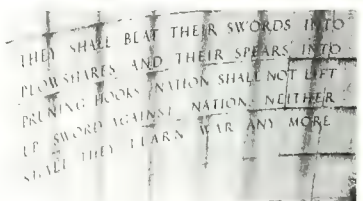 THEY SHALL BEAT THEIR SWORDS INTO
PLOWSHARES AND THEIR SPEARS INTO
PRUNING HOOKS NATION SHALL NOT LIFT
UP SWORD AGAINST NATION NEITHER
SHALL THEY LEARN WAR ANY MORE